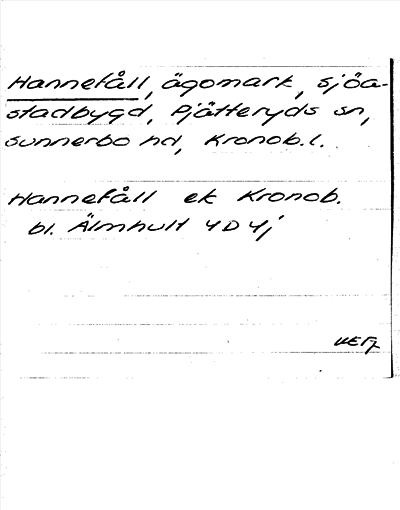 Hannefåll, ägomark, Sjöa-
stadbygd, Pjätteryds sn,
Sunnerbo hd, Kronob. l.
Hannefåll ek Kronob.
bl. Älmhult 4D 4j